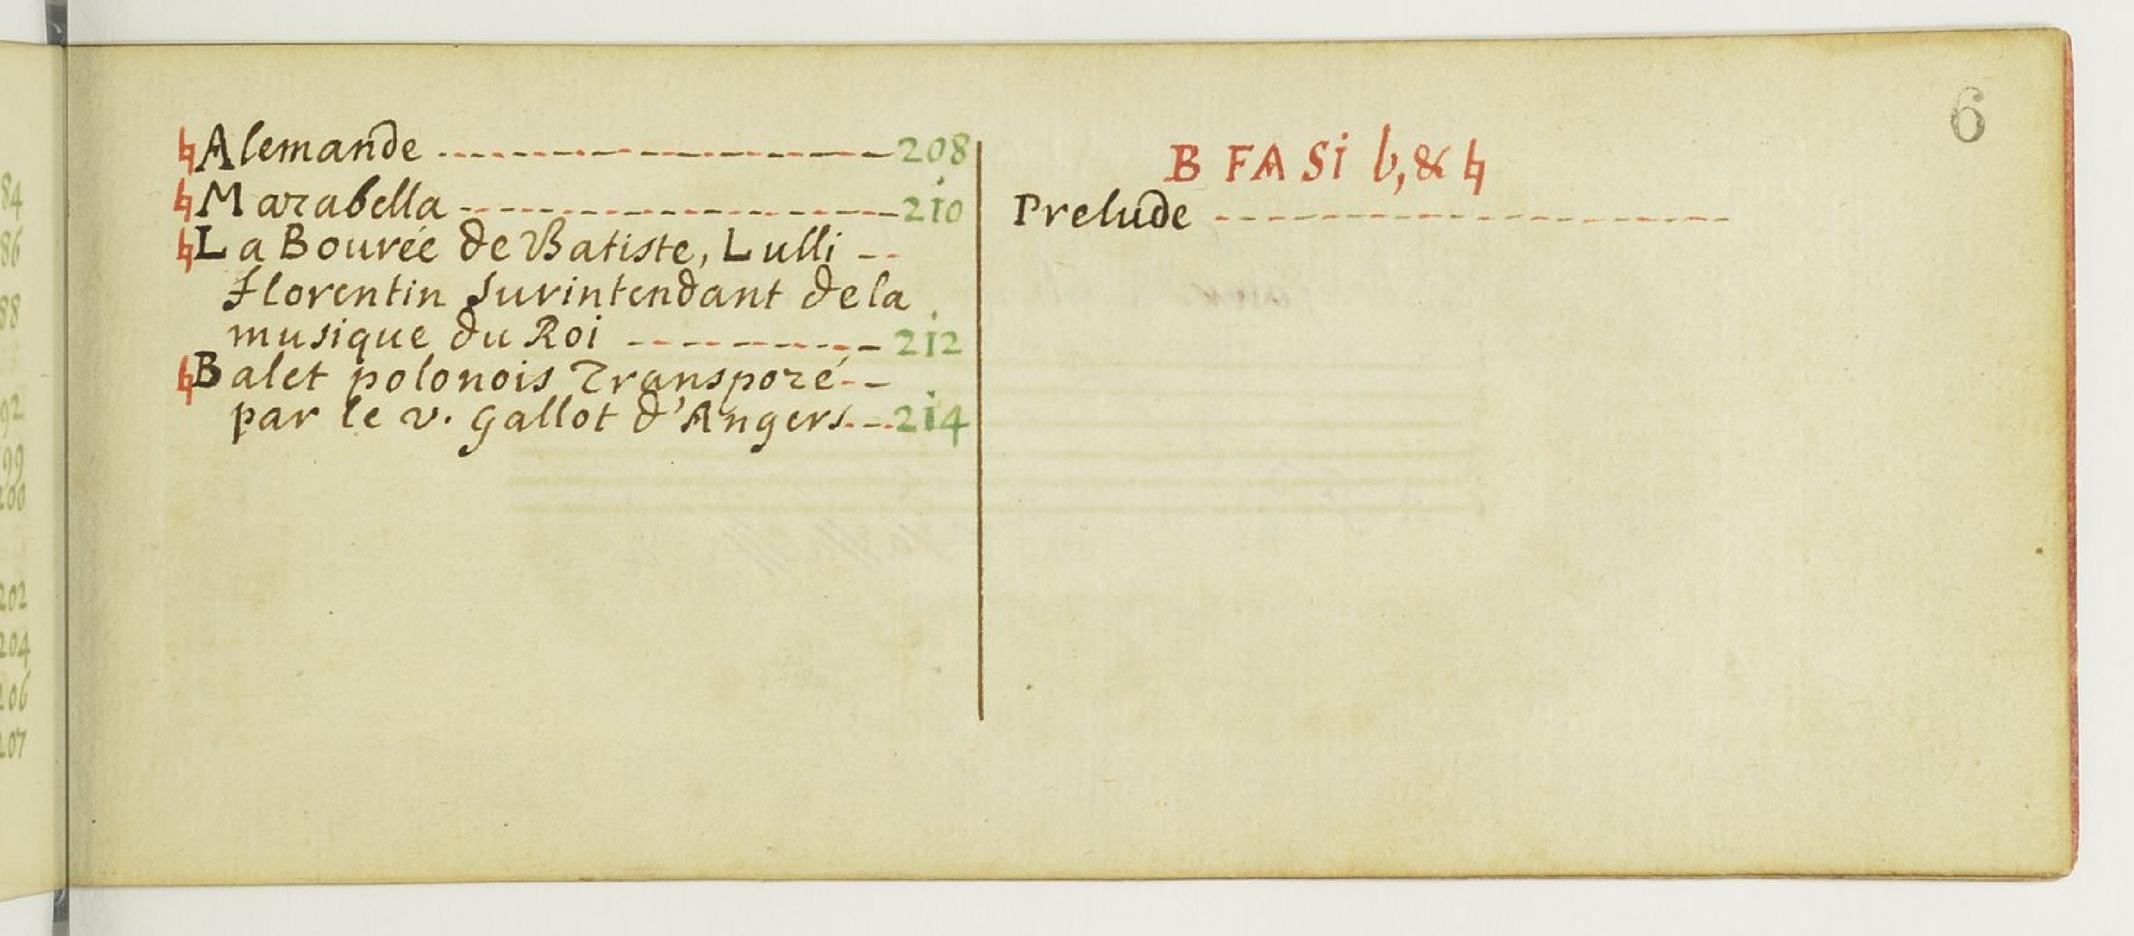 84
86
88
92
99
200
202
204
206
207
♮Alemande 208
♮Marabella 210
♮La Bourée de Batiste, Lulli
Florentin Surintendant de la
musique du Roi 212
♮Balet polonois Transpozé
par le v. gallot d'Angers 214
6
B FA Si b, & ♮
Prelude